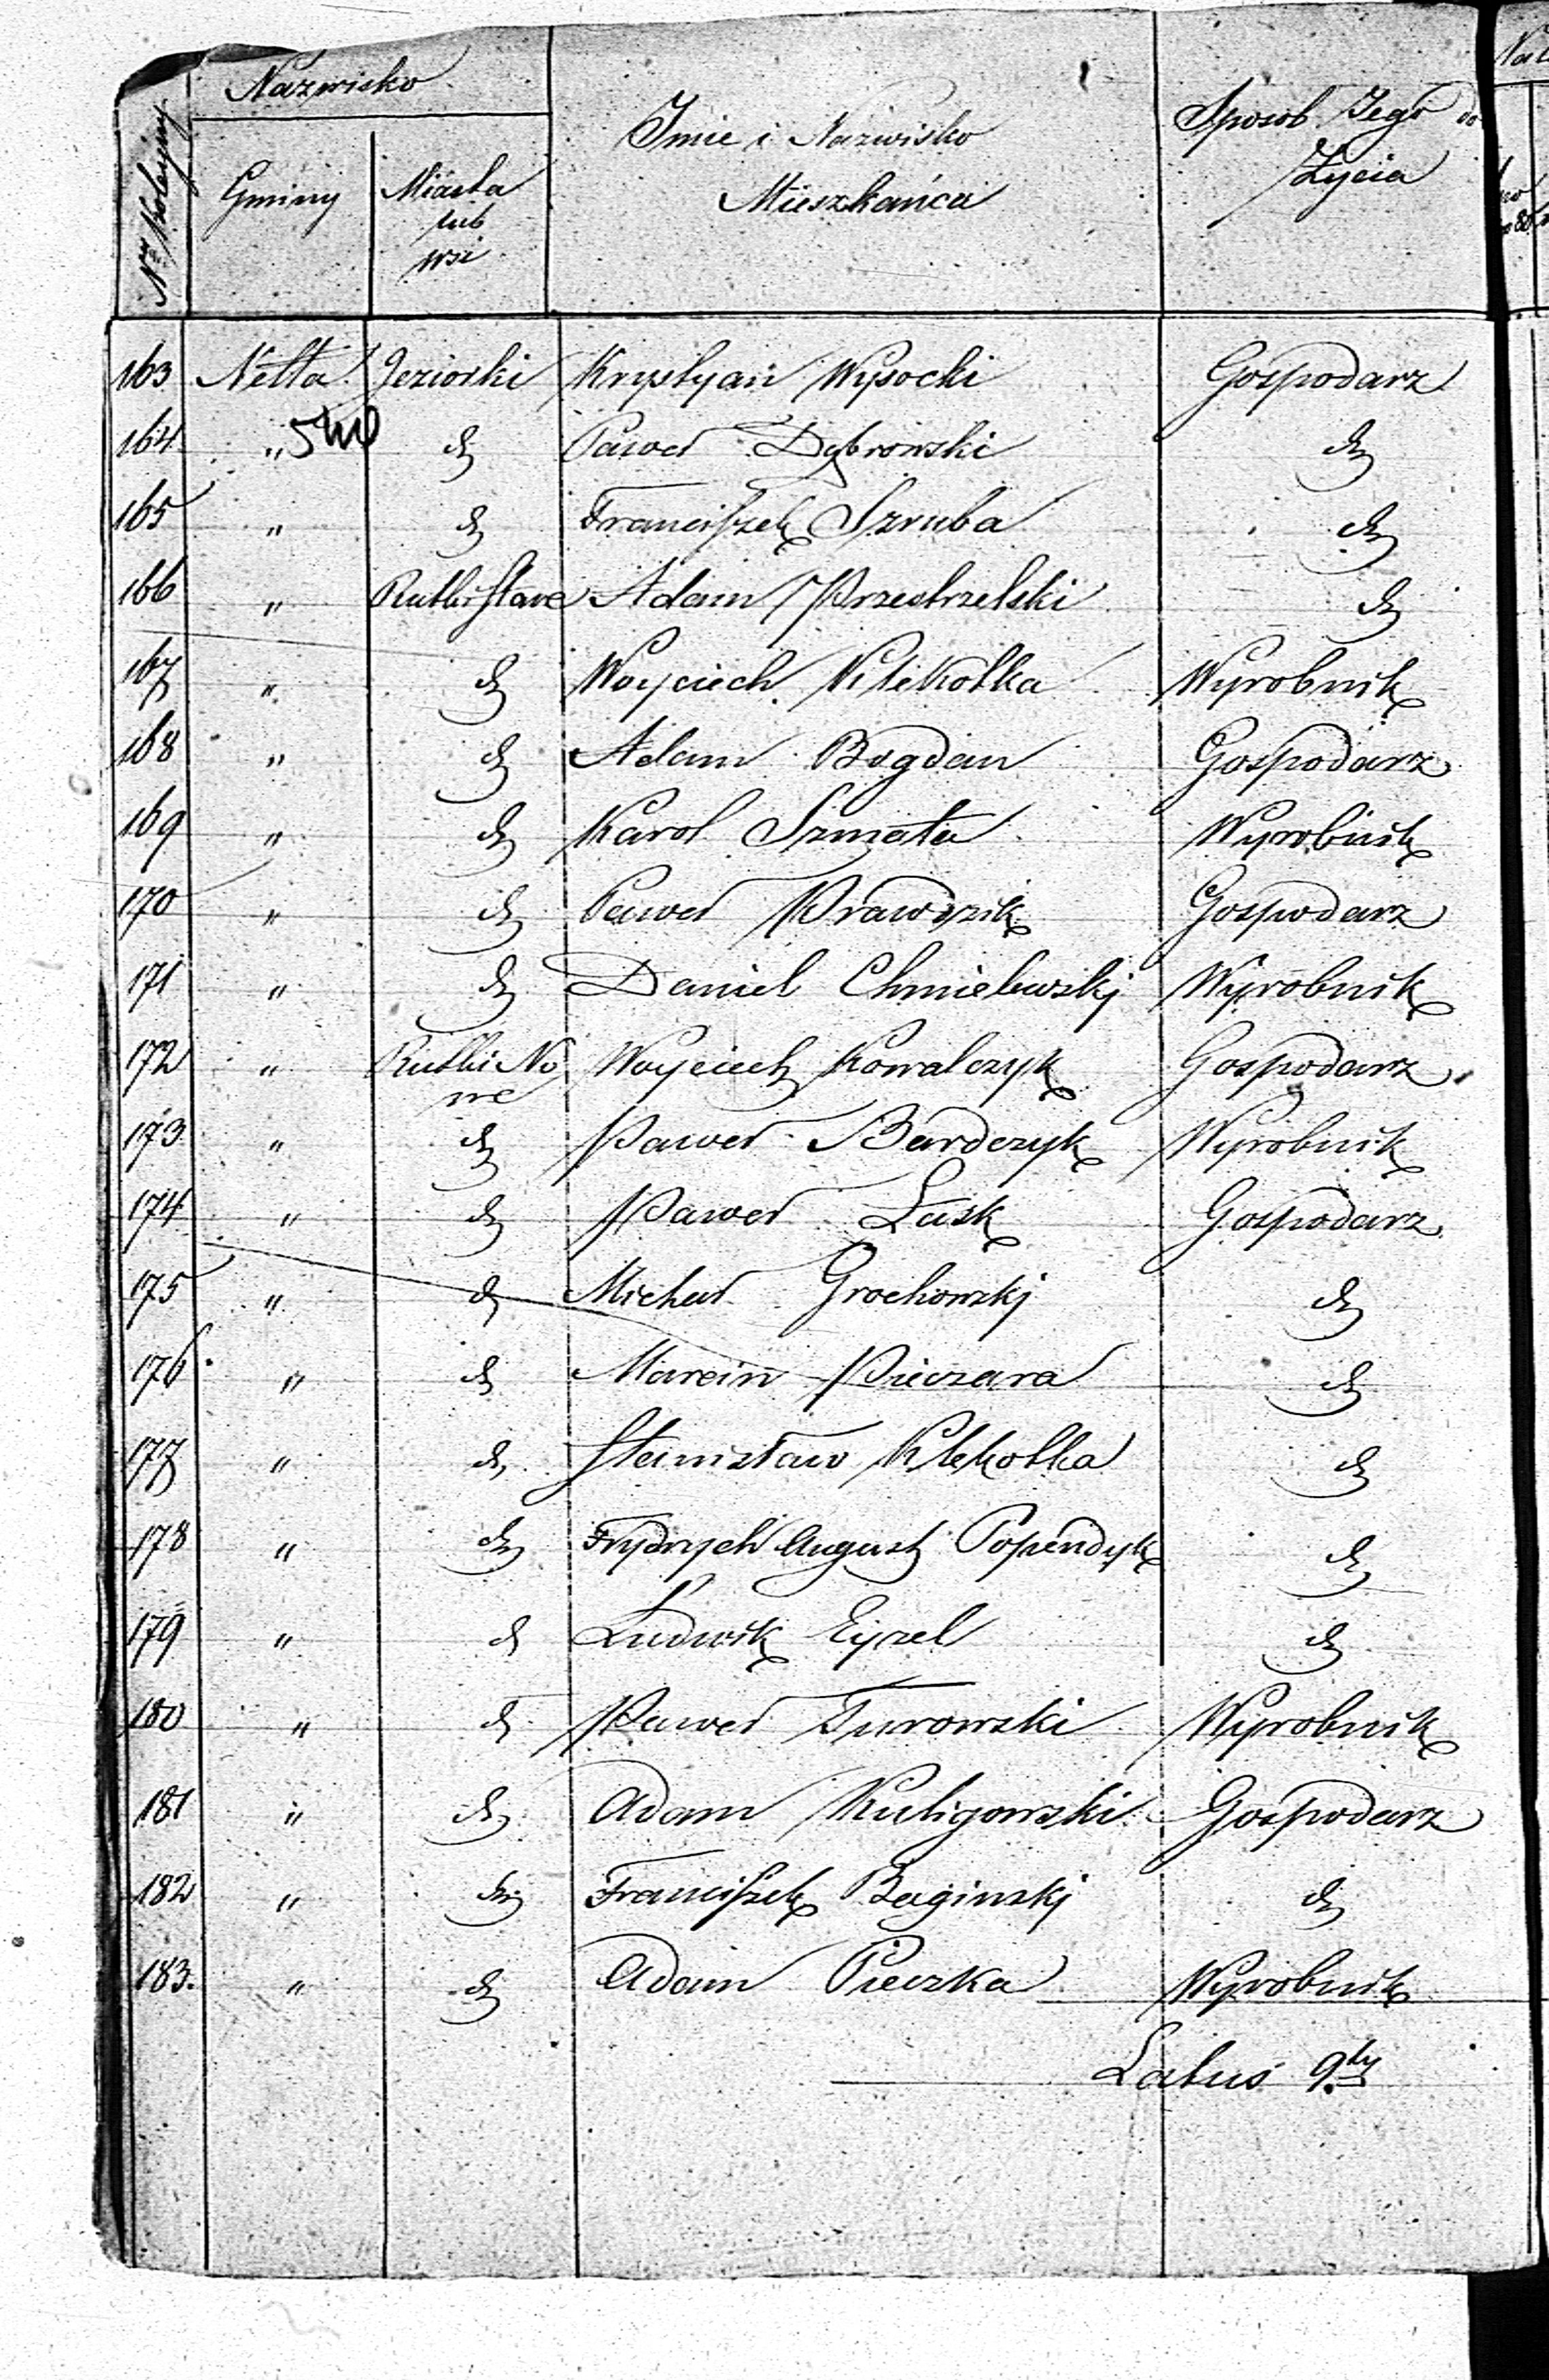 Nro Kolejny
Nazwisko
Gminy
Miasta
lub
wsi
Imie i Nazwisko
Mieszkańca
Sposob Jego
Życia
163 Netta Jeziorki Krystyan Wysocki Gospodarz
164 " d Paweł Dębrowski d
165 " d Franciszek Szruba d
166 " Rutki Stare Adam Przestrzelski d
167 " d Woyciech Klekotka Wyrobnik
168 " d Adam Bogdan Gospodarz
169 " d Karol Szmata Wyrobnik
170 " d Paweł Prawdzik Gospodarz
171 " d Daniel Chmielewskj Wyrobnik
172 " Rutki No Woyciech Kowalczyk Gospodarz
we
173 " d Paweł Bardczyk Wyrobnik
174 " d Paweł Łask Gospodarz
175 " d Michał Grochowskj d
176 " d Marcin Pieczara d
177 " d Stanisław Klekotka d
178 " d Frydrych August Popendyk d
179 " d Ludwik Eyzel d
180 " d Paweł Turowski Wyrobnik
181 " d Adam Kuligowski Gospodarz
182 " d Franciszek Baginskj d
183. " d Adam Pieczka Wyrobnik
Latus 9ty